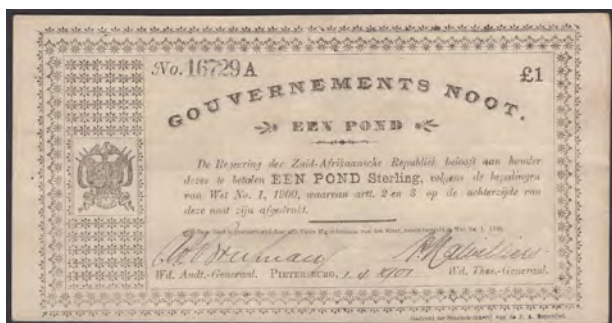 No. 16729 A £1
GOUVERNEMENTS NOOT.
EEN POND
De Regeering der Zuid-Afrikaansche Republiek belooft aan houder
dezes te betalen EEN POND Sterling, volgens de bepalingen
van Wet No. 1, 1900, waarvan artt. 2 en 3 op de achterzijde van
deze noot zijn afgedrukt.
Wd. Audt.-Generaal. PIETERSBURG, 1901 Wd. Thes.-Generaal.
Gedrukt ter Staatsdrukkerij van de Z. A. Republiek.